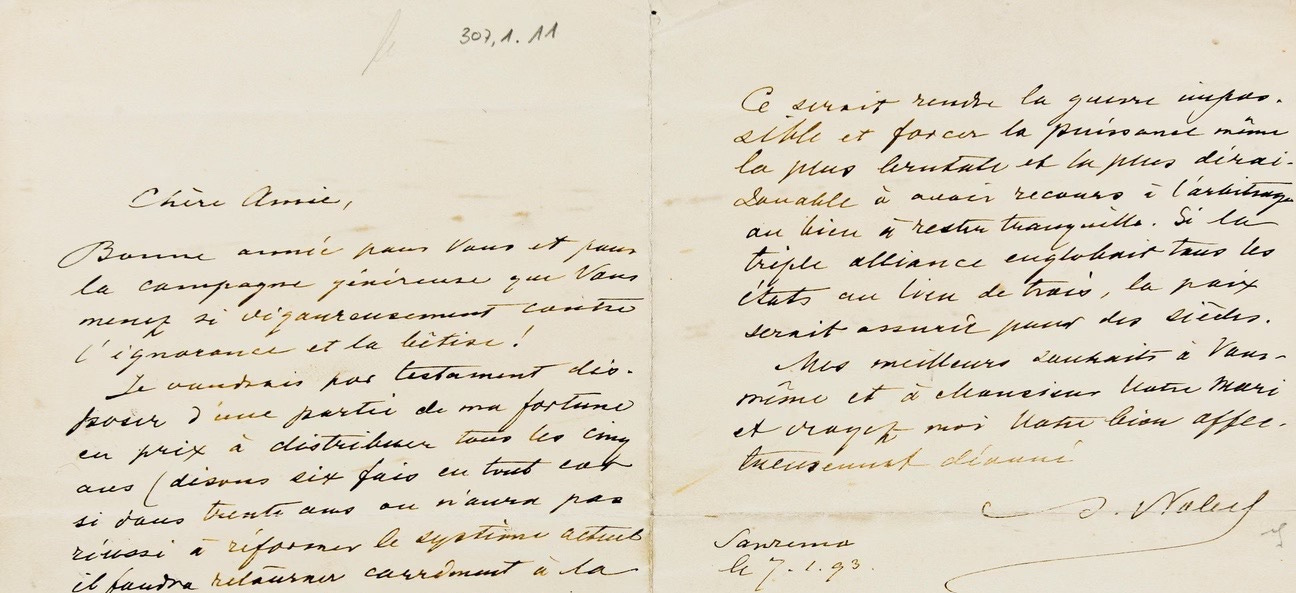 307,1.11
Chère Amie,
Bonne année pour Vous et pour
la campagne généreuse que Vous
menez si vigoureusement contre
l'ignorance et la bêtise!
Je voudrais par testament dis-
poser d'une partie de ma fortune
en prix à distribuer tous les cinq
ans (disons six fois en tout car
si dans trente ans on n'aura pas
réussi à réformer le système actuel
il faudra retourner carrément à la
Ce serait rendre la guerre impos-
sible et forcer la puissance même
la plus brutale et la plus dérai-
sonnable à avoir recours à l'arbitrage
ou bien à rester tranquille. Si la
triple alliance englobait tous les
états au lieu de trois, la paix
serait assurée pour des siècles.
Mes meilleurs souhaits à Vous-
même et à Monsieur Votre Mari
et croyez moi Votre bien affec-
tueusement dévoué
A. Nobel
Sanremo
le 7.1.93.